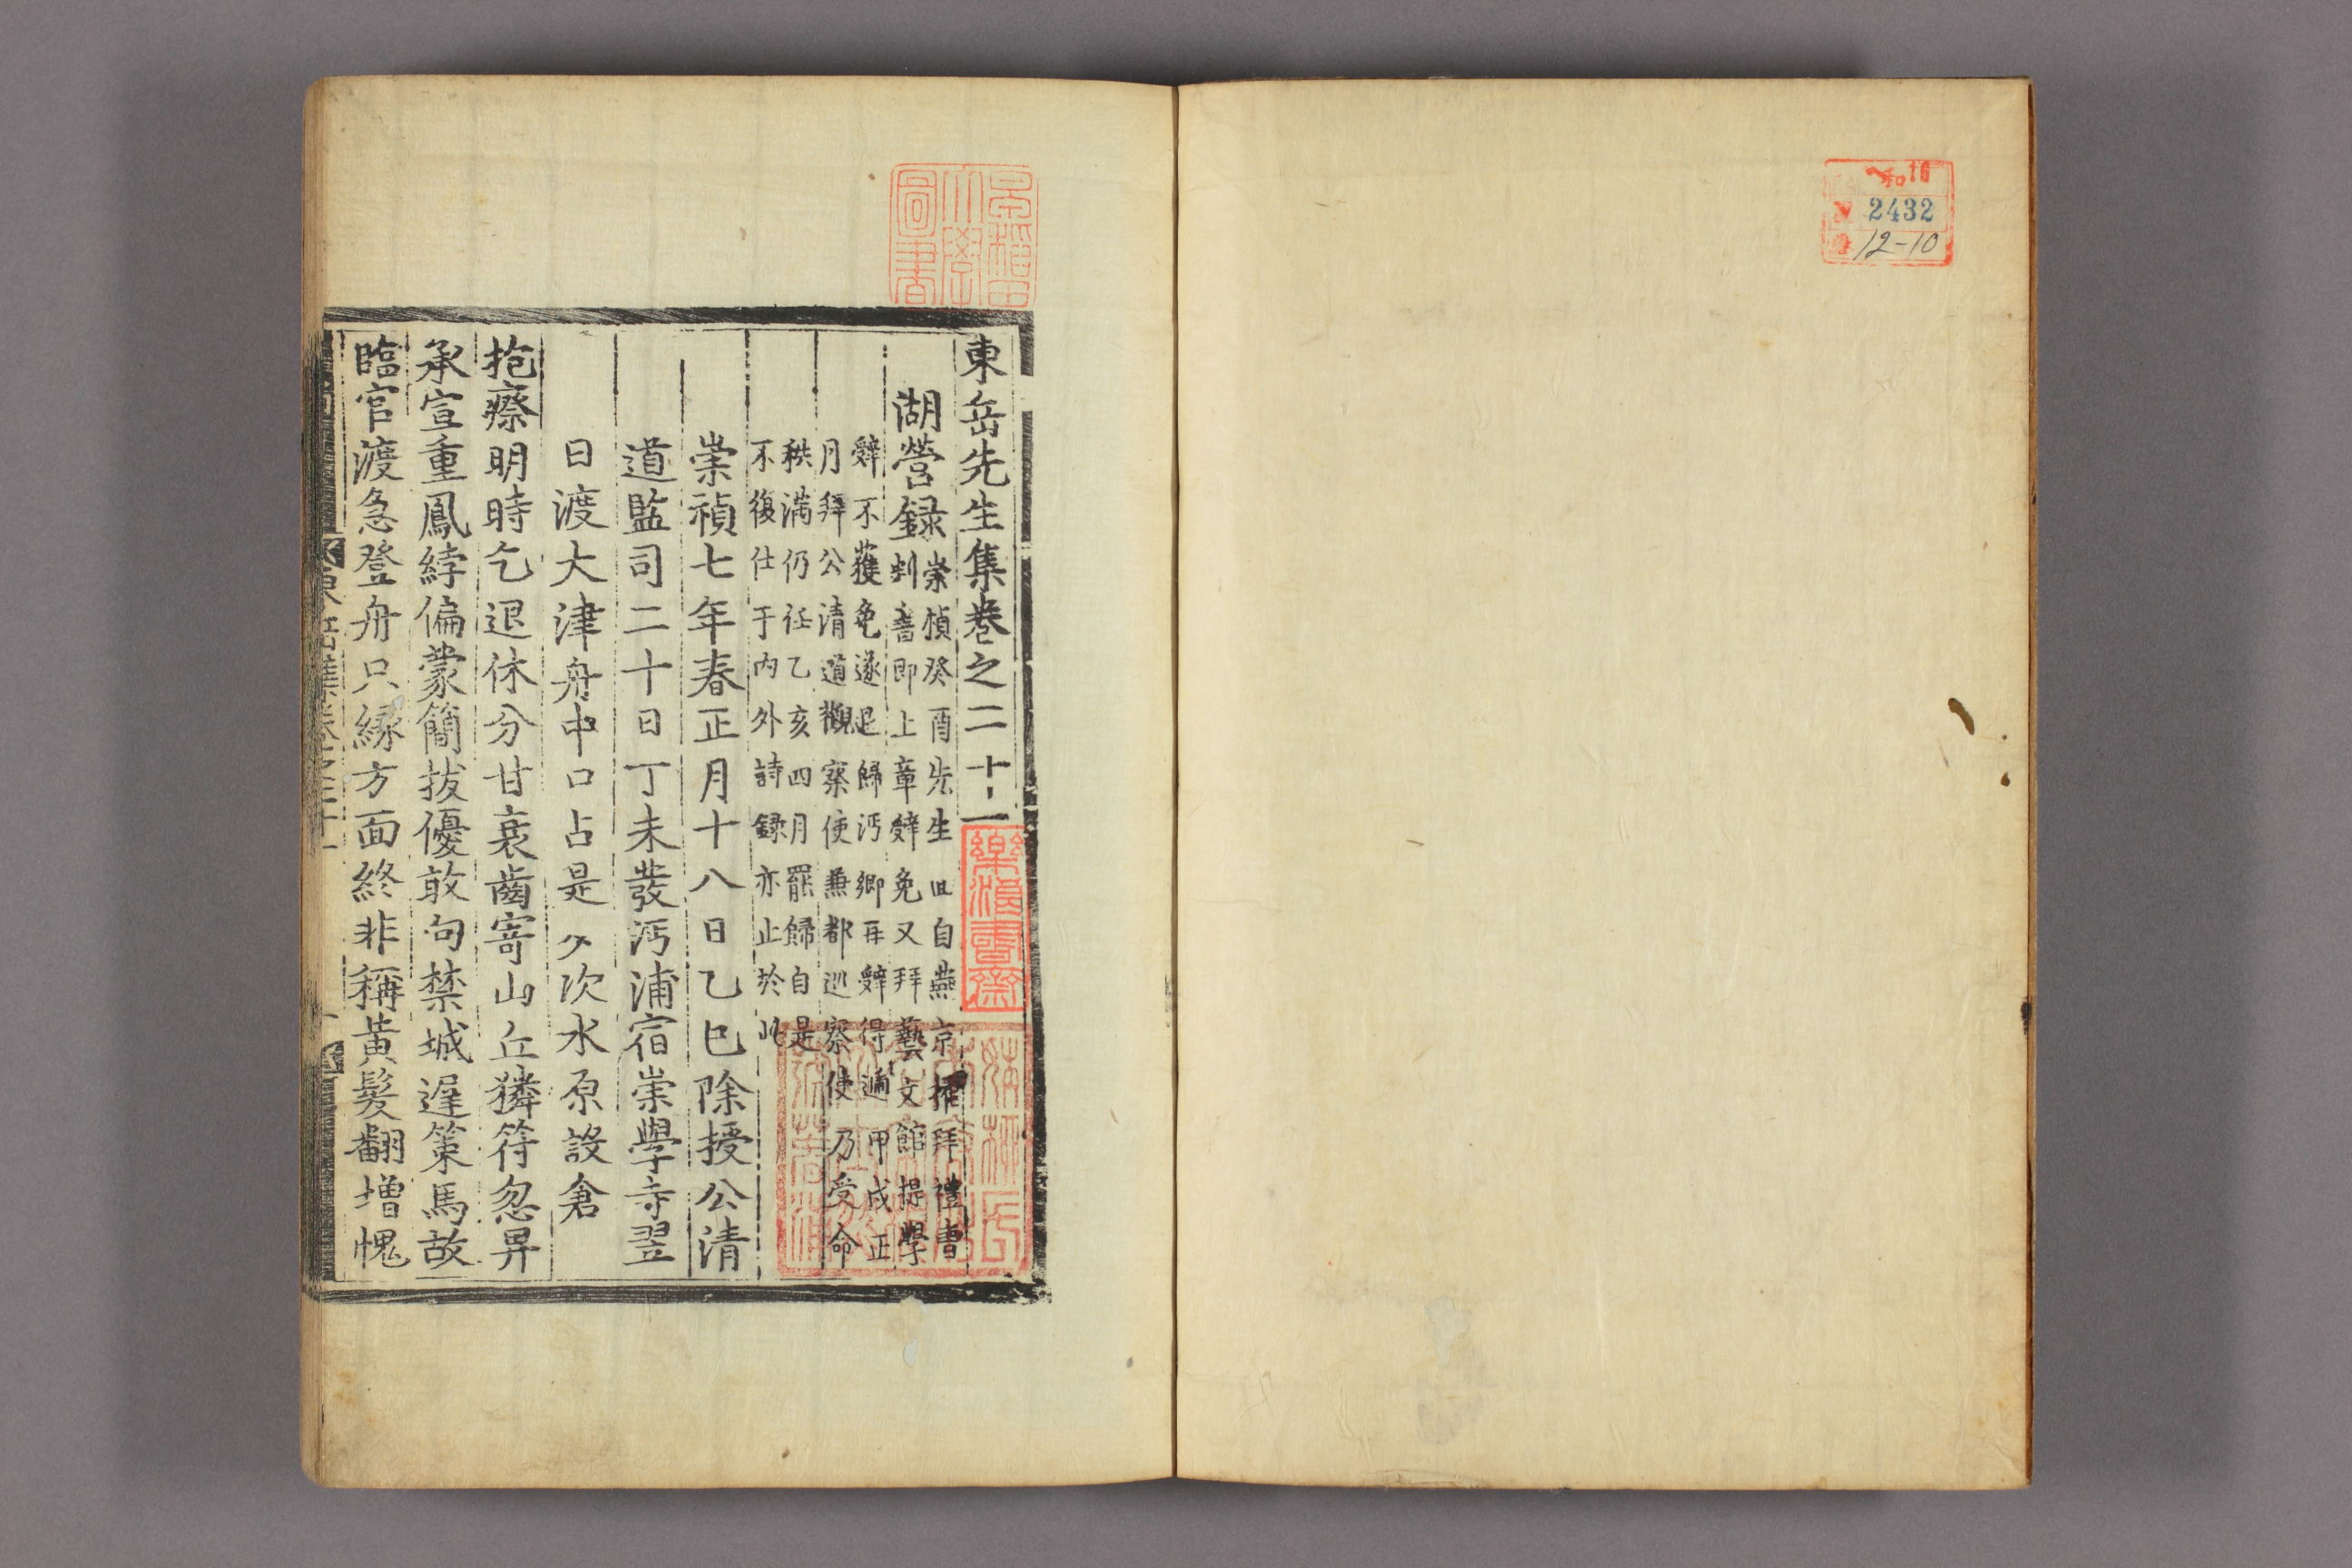 和16
2432
12-10
早稲田大學圖書
東岳先生集卷之二十一
湖營録 崇禎癸酉先生回自燕京擢拜禮曹
判書即上章辤免又拜藝文館提學
辤不獲免遂退歸沔鄉再辤得遞甲戌正
月拜公清道觀察使兼都巡察使乃受命
秩満仍任乙亥四月罷歸自是
不復仕于内外詩録亦止於此
崇禎七年春正月十八日乙巳除授公清
道監司二十日丁未發沔浦宿崇學寺翌
日渡大津舟中口占是夕次水原設倉
抱瘵明時乞退休分甘衰齒寄山丘獜符忽畀
承宣重鳳綍偏蒙簡拔優敢句禁城遅策馬故
臨官渡急登舟只縁方面終非稱黃髮翻増愧
東岳集卷之二十一
一
樂浪書齋